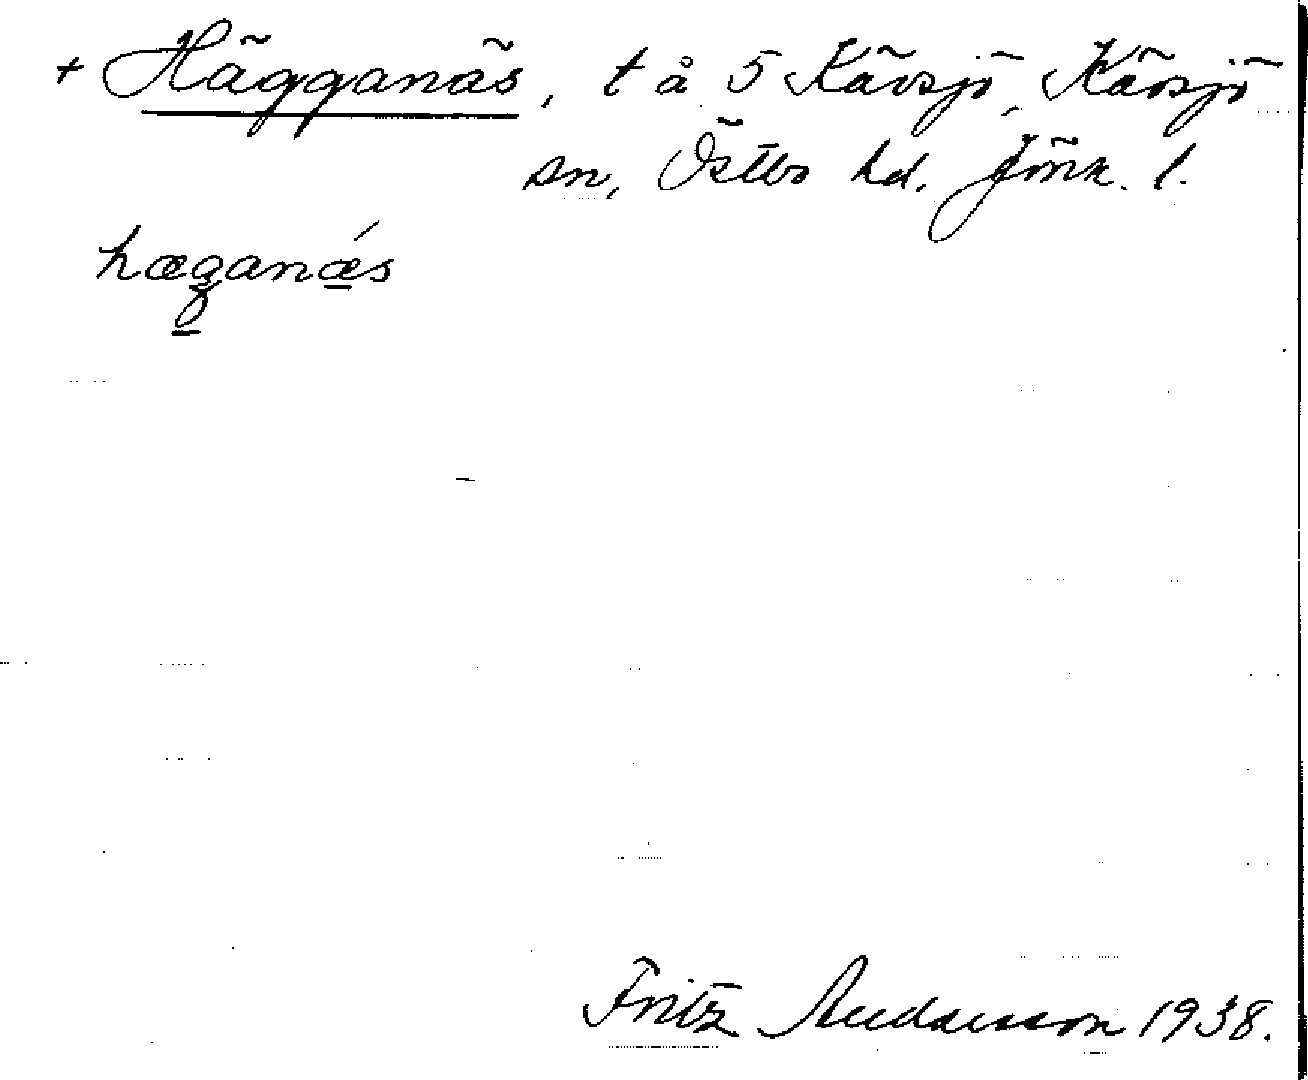 + Hägganäs, t å 5 Kävsjö, Kävsjö
sn, Östbo hd. Jönk. l.
hæganǽs
Fritz Andersson 1938.